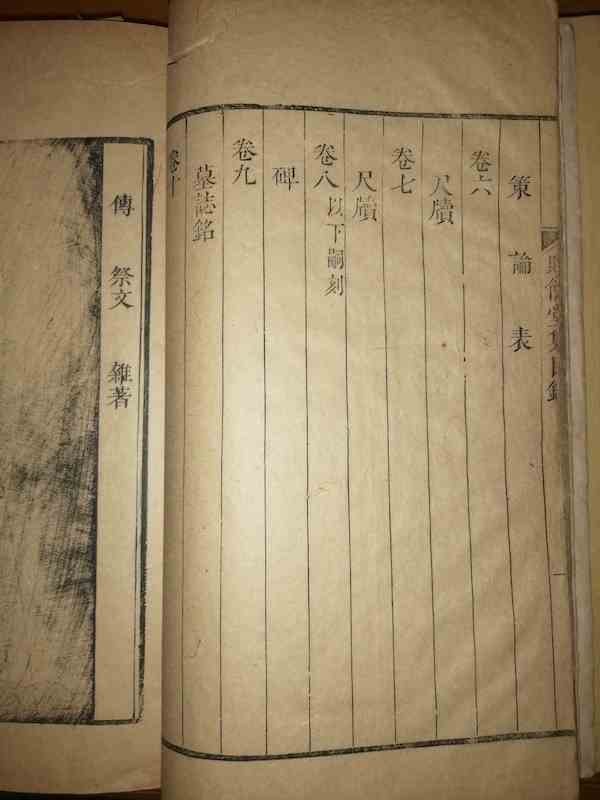 堂集目錄
策 論 表
卷六
尺牘
卷七
尺牘
卷八 以下嗣刻
碑
卷九
墓誌銘
卷十
傳 祭文 雜著